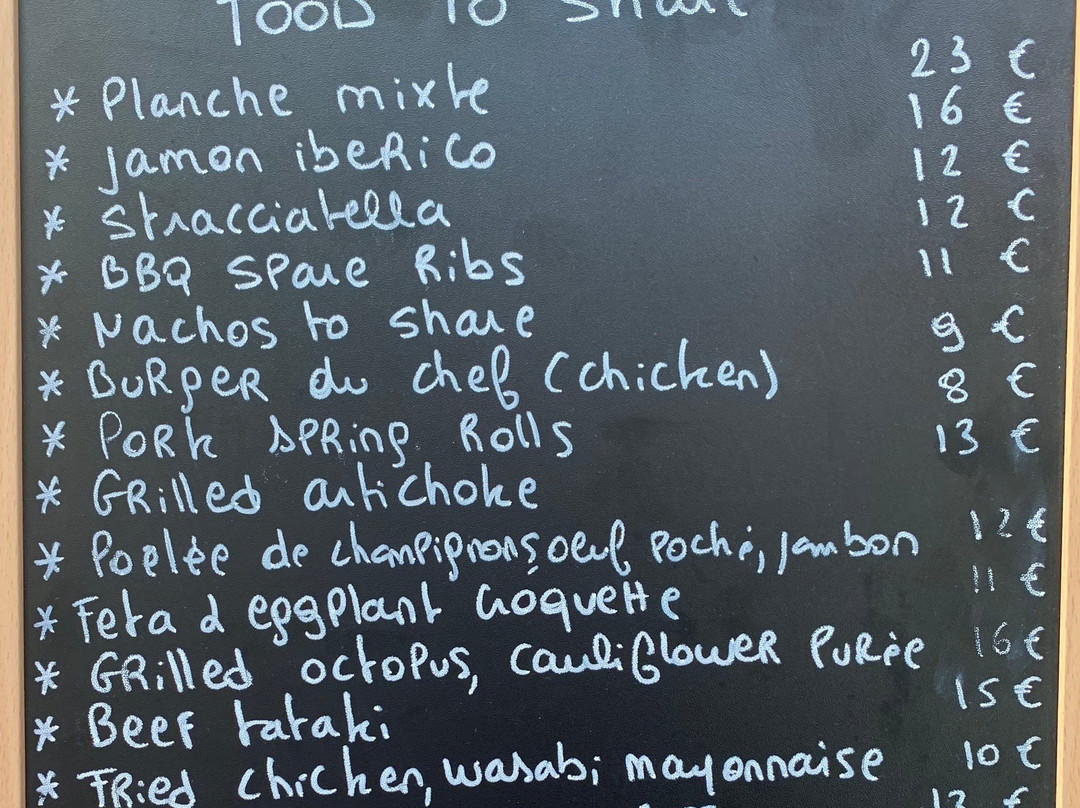 FOOD TO Share
* Planche mixte 23 €
* jamon ibeRico 16 €
* stracciatella 12 €
* BBQ SPare Ribs 12 €
* Nachos to share 11 €
* BuRgER du chef (chicken) 9 €
* PORk SPRing Rolls 8 €
* GRilled artichoke 13 €
* Poelée de champignons, oeuf poché, jambon 12 €
* Feta & eggplant croquette 11 €
* GRilled octopus, cauliflowER PuRée 16 €
* BeeF tataki 15 €
* FRied chicken, wasabi mayonnaise 10 €
12 €